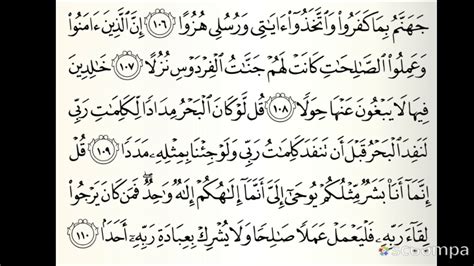 جَهَنَّمُ بِمَا كَفَرُوا۟ وَٱتَّخَذُوٓا۟ ءَايَٰتِى وَرُسُلِى هُزُوًا ١٠٦ إِنَّ ٱلَّذِينَ ءَامَنُوا۟
وَعَمِلُوا۟ ٱلصَّٰلِحَٰتِ كَانَتْ لَهُمْ جَنَّٰتُ ٱلْفِرْدَوْسِ نُزُلًا ١٠٧ خَٰلِدِينَ
فِيهَا لَا يَبْغُونَ عَنْهَا حِوَلًا ١٠٨ قُل لَّوْ كَانَ ٱلْبَحْرُ مِدَادًا لِّكَلِمَٰتِ رَبِّى
لَنَفِدَ ٱلْبَحْرُ قَبْلَ أَن تَنفَدَ كَلِمَٰتُ رَبِّى وَلَوْ جِئْنَا بِمِثْلِهِۦ مَدَدًا ١٠٩ قُلْ
إِنَّمَآ أَنَا۠ بَشَرٌ مِّثْلُكُمْ يُوحَىٰٓ إِلَىَّ أَنَّمَآ إِلَٰهُكُمْ إِلَٰهٌ وَٰحِدٌ فَمَن كَانَ يَرْجُوا۟
لِقَآءَ رَبِّهِۦ فَلْيَعْمَلْ عَمَلًا صَٰلِحًا وَلَا يُشْرِكْ بِعِبَادَةِ رَبِّهِۦٓ أَحَدًۢا ١١٠
scoompa